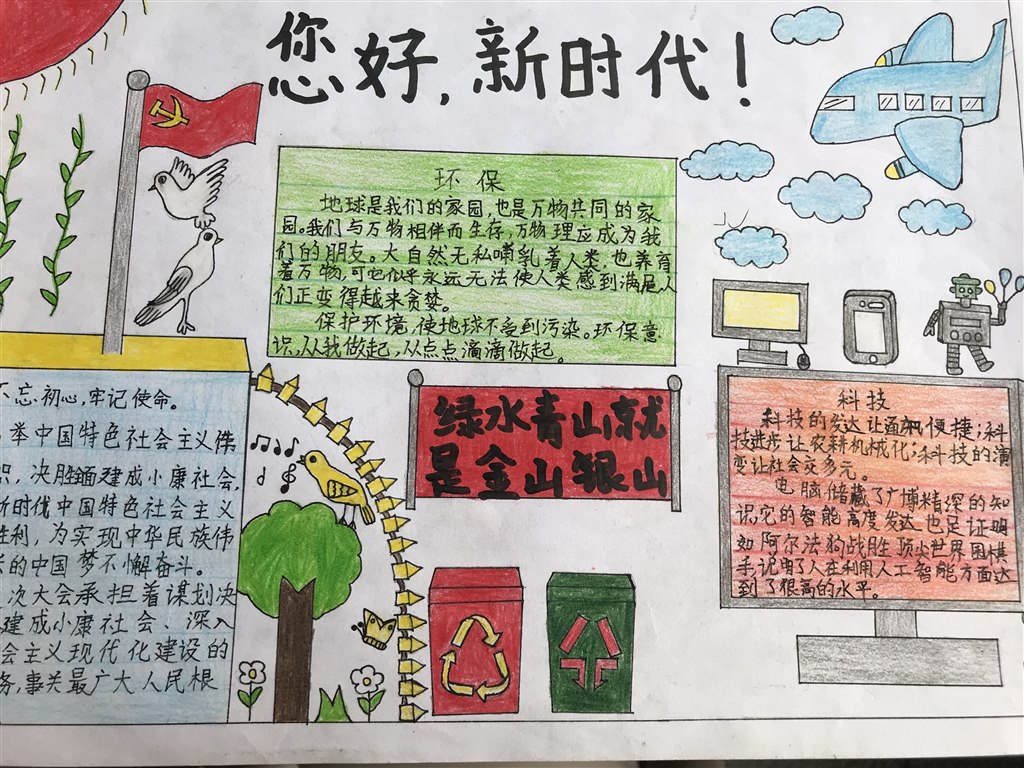 您好,新时代!
环保
地球是我们的家园,也是万物共同的家
园。我们与万物相伴而生存,万物理应成为我
们的朋友。大自然无私哺乳着人类,也养育
着万物,可也似乎永远无法使人类感到满足,人
们正变得越来贪婪。
保护环境,使地球不受到污染。环保意
识,从我做起,从点点滴滴做起。
不忘初心,牢记使命。
举中国特色社会主义伟
识,决胜全面建成小康社会,
新时代中国特色社会主义
胜利,为实现中华民族伟
的中国梦不懈奋斗。
次大会承担着谋划决
建成小康社会、深入
会主义现代化建设的
务,事关最广大人民根
绿水青山就
是金山银山
科技
科技的发达让通便捷;科
技进步让农耕机械化;科技的演
变让社会交多元。
电脑储藏了广博精深的知
识,它的智能高度发达,也足证明
如阿尔法狗战胜顶尖世界围棋
手,说明了人在利用人工智能方面达
到了很高的水平。